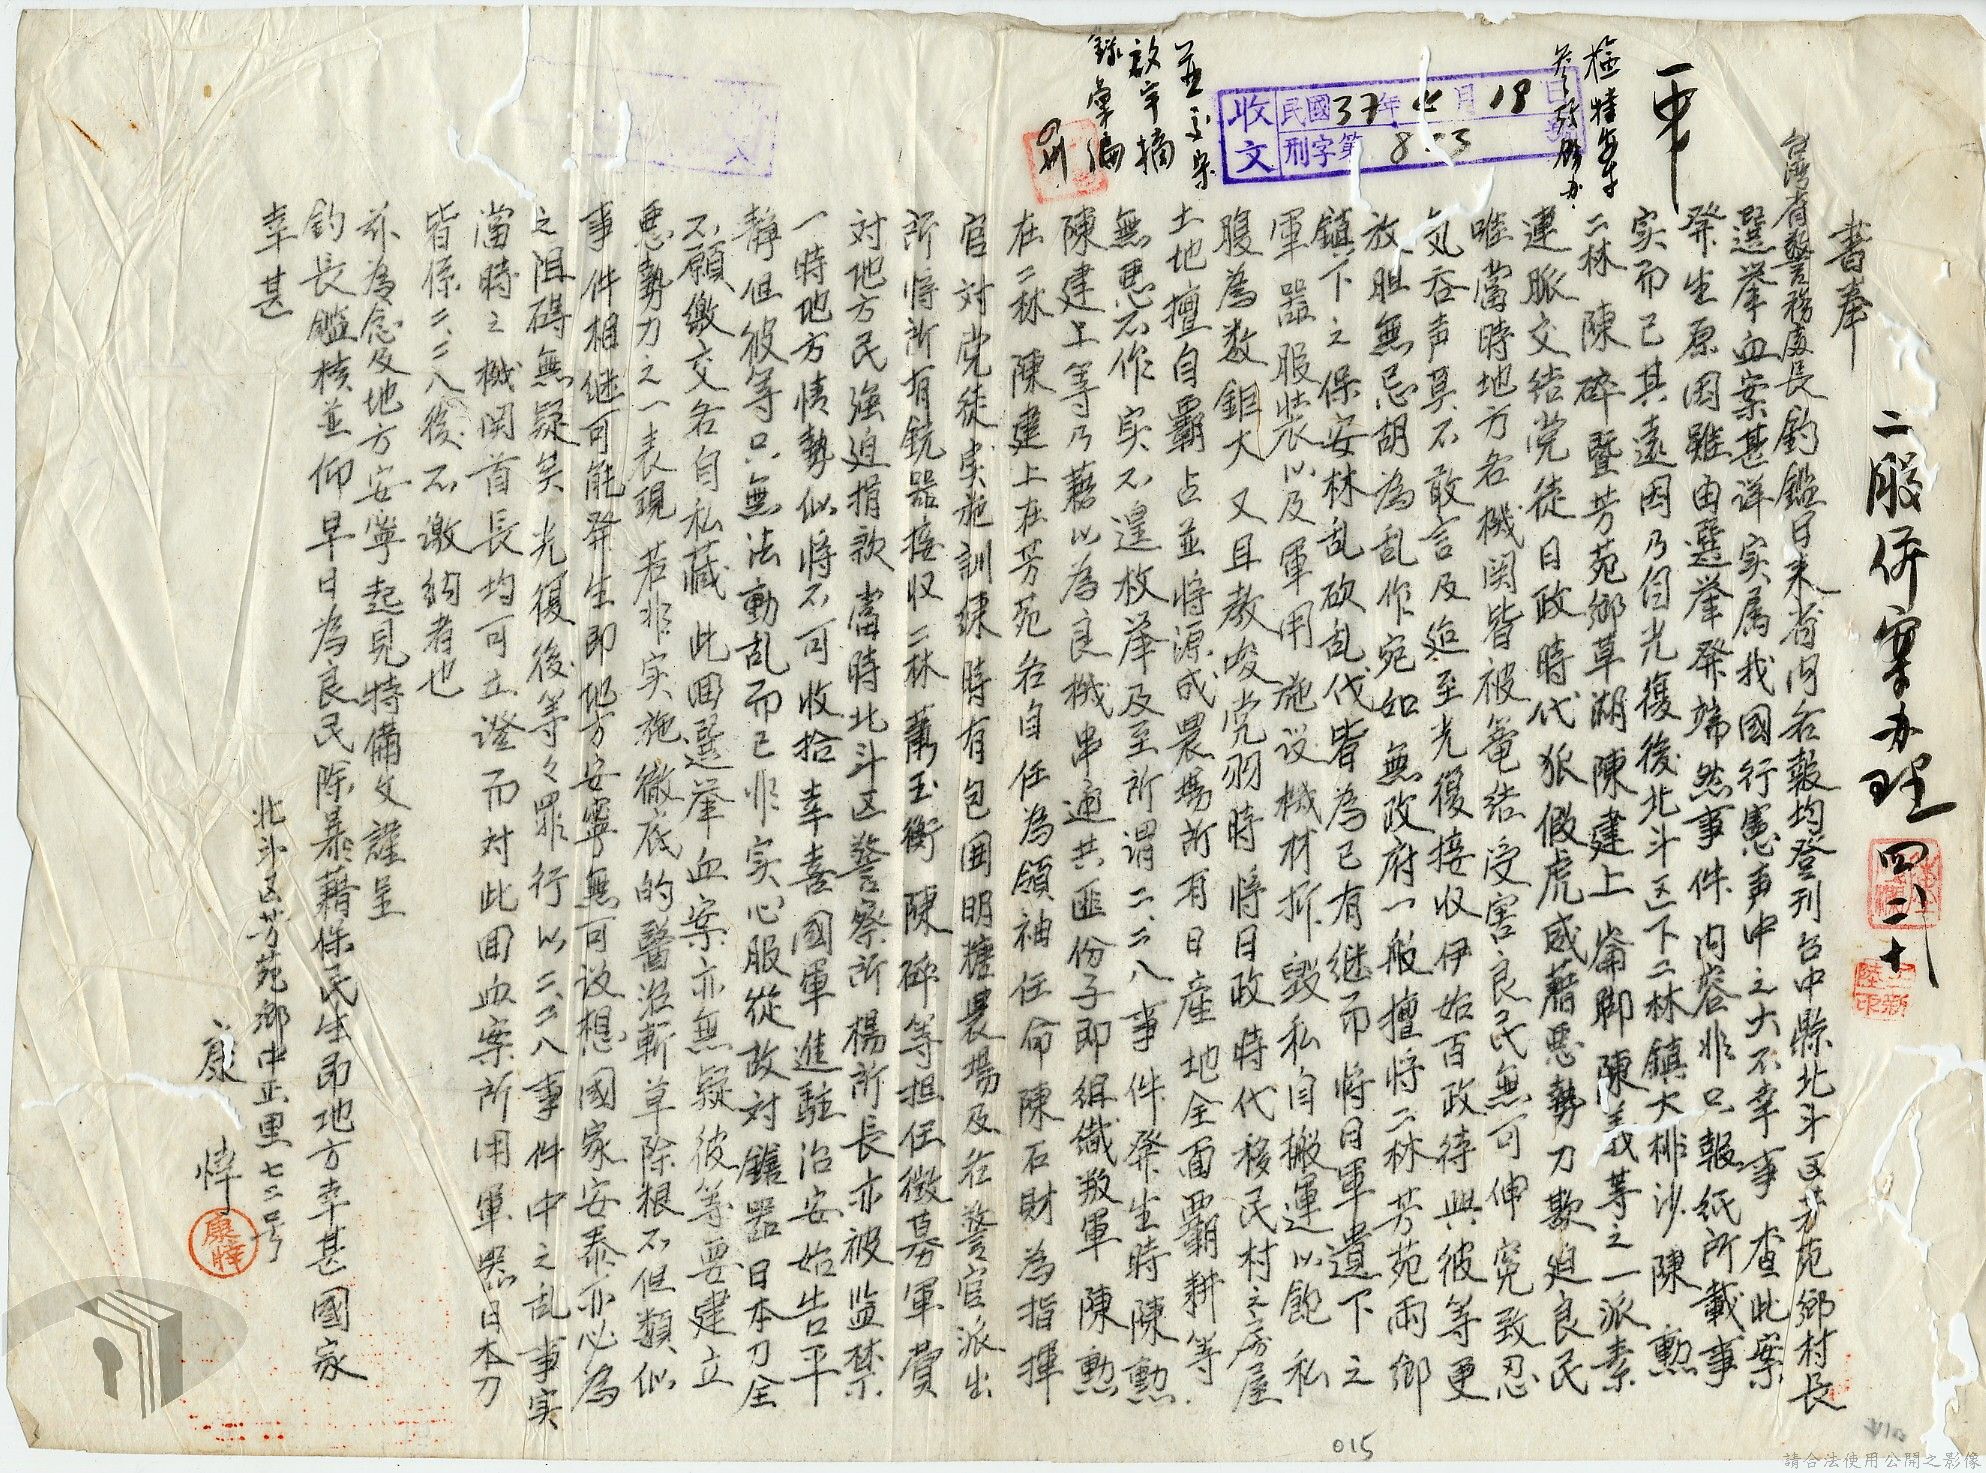 二股併案办理 四、二十
書奉
台湾省警務處長鈞鑑日來省內各報均登刊台中縣北斗区芳苑鄉村長
選挙血案甚详实属我國行憲事中之大不幸事 查此案
発生原因雖由選挙発端然事件内容非只報紙所載事
实而已其遠因乃自光復後北斗区下二林鎮大排沙陳 勲
二林 陳碎暨芳苑鄉草湖陳建上 崙脚陳義等之一派素
連脈交结党徒日政時代狐假虎威藉悪勢力欺迫良民
唯當時地方各機関皆被篭结受害良民無可伸冤致忍
気吞声莫不敢言及迨至光復接収伊始百政待興彼等更
放胆無忌胡為乱作宛如無政府一般擅将二林芳苑両鄉
鎮下之保安林乱砍乱伐皆為已有继而将日軍遺下之
軍器服裝以及軍用施设機材拆毀私自搬運以飽私
腹為数鉅大 又且教唆党羽時将日政時代移民村之房屋
土地擅自霸占並将源成農場所有日産地全面霸耕等
無悪不作实不遑枚挙及至所謂二、二八事件発生時陳勲
陳建上等乃藉以為良機串通共匪份子即組織叛軍 陳勲
在二林 陳建上在芳苑各自任為領袖任命陳石財為指揮
官対党徒实施訓練 時有包囲明糖農場及各警官派出
所将所有銃器接収 二林 萬玉衡 陳碎等担任徵募軍費
対地方民強迫捐款當時北斗区警察所楊所長亦被监禁
一時地方情勢似将不可收拾幸喜國軍進駐治安始告平
静但彼等只無法動乱而已非实心服從故対鎗器日本刀全
不願繳交各自私藏 此回選挙血案亦無疑彼等要建立
悪勢力之一表現 若非实施徹底的醫治斬草除根不但類似
事件相继可能発生即地方安寧無可设想國家安泰亦必為
之阻碍無疑矣 光復後等々罪行以二、二八事件中之乱事实
當時之機関首長均可立證而対此回血案所用軍器日本刀
皆係二、二八後不激納者也
茲為念及地方安寧起見特備文謹呈
鈞長鑑核並仰早日為良民除暴藉保民生即地方幸甚國家
幸甚
北斗区芳苑鄉中正里七二号
康 悻
康悻
收文
民國37年4月18日
刑字第 号
015
請合法使用公開之影像